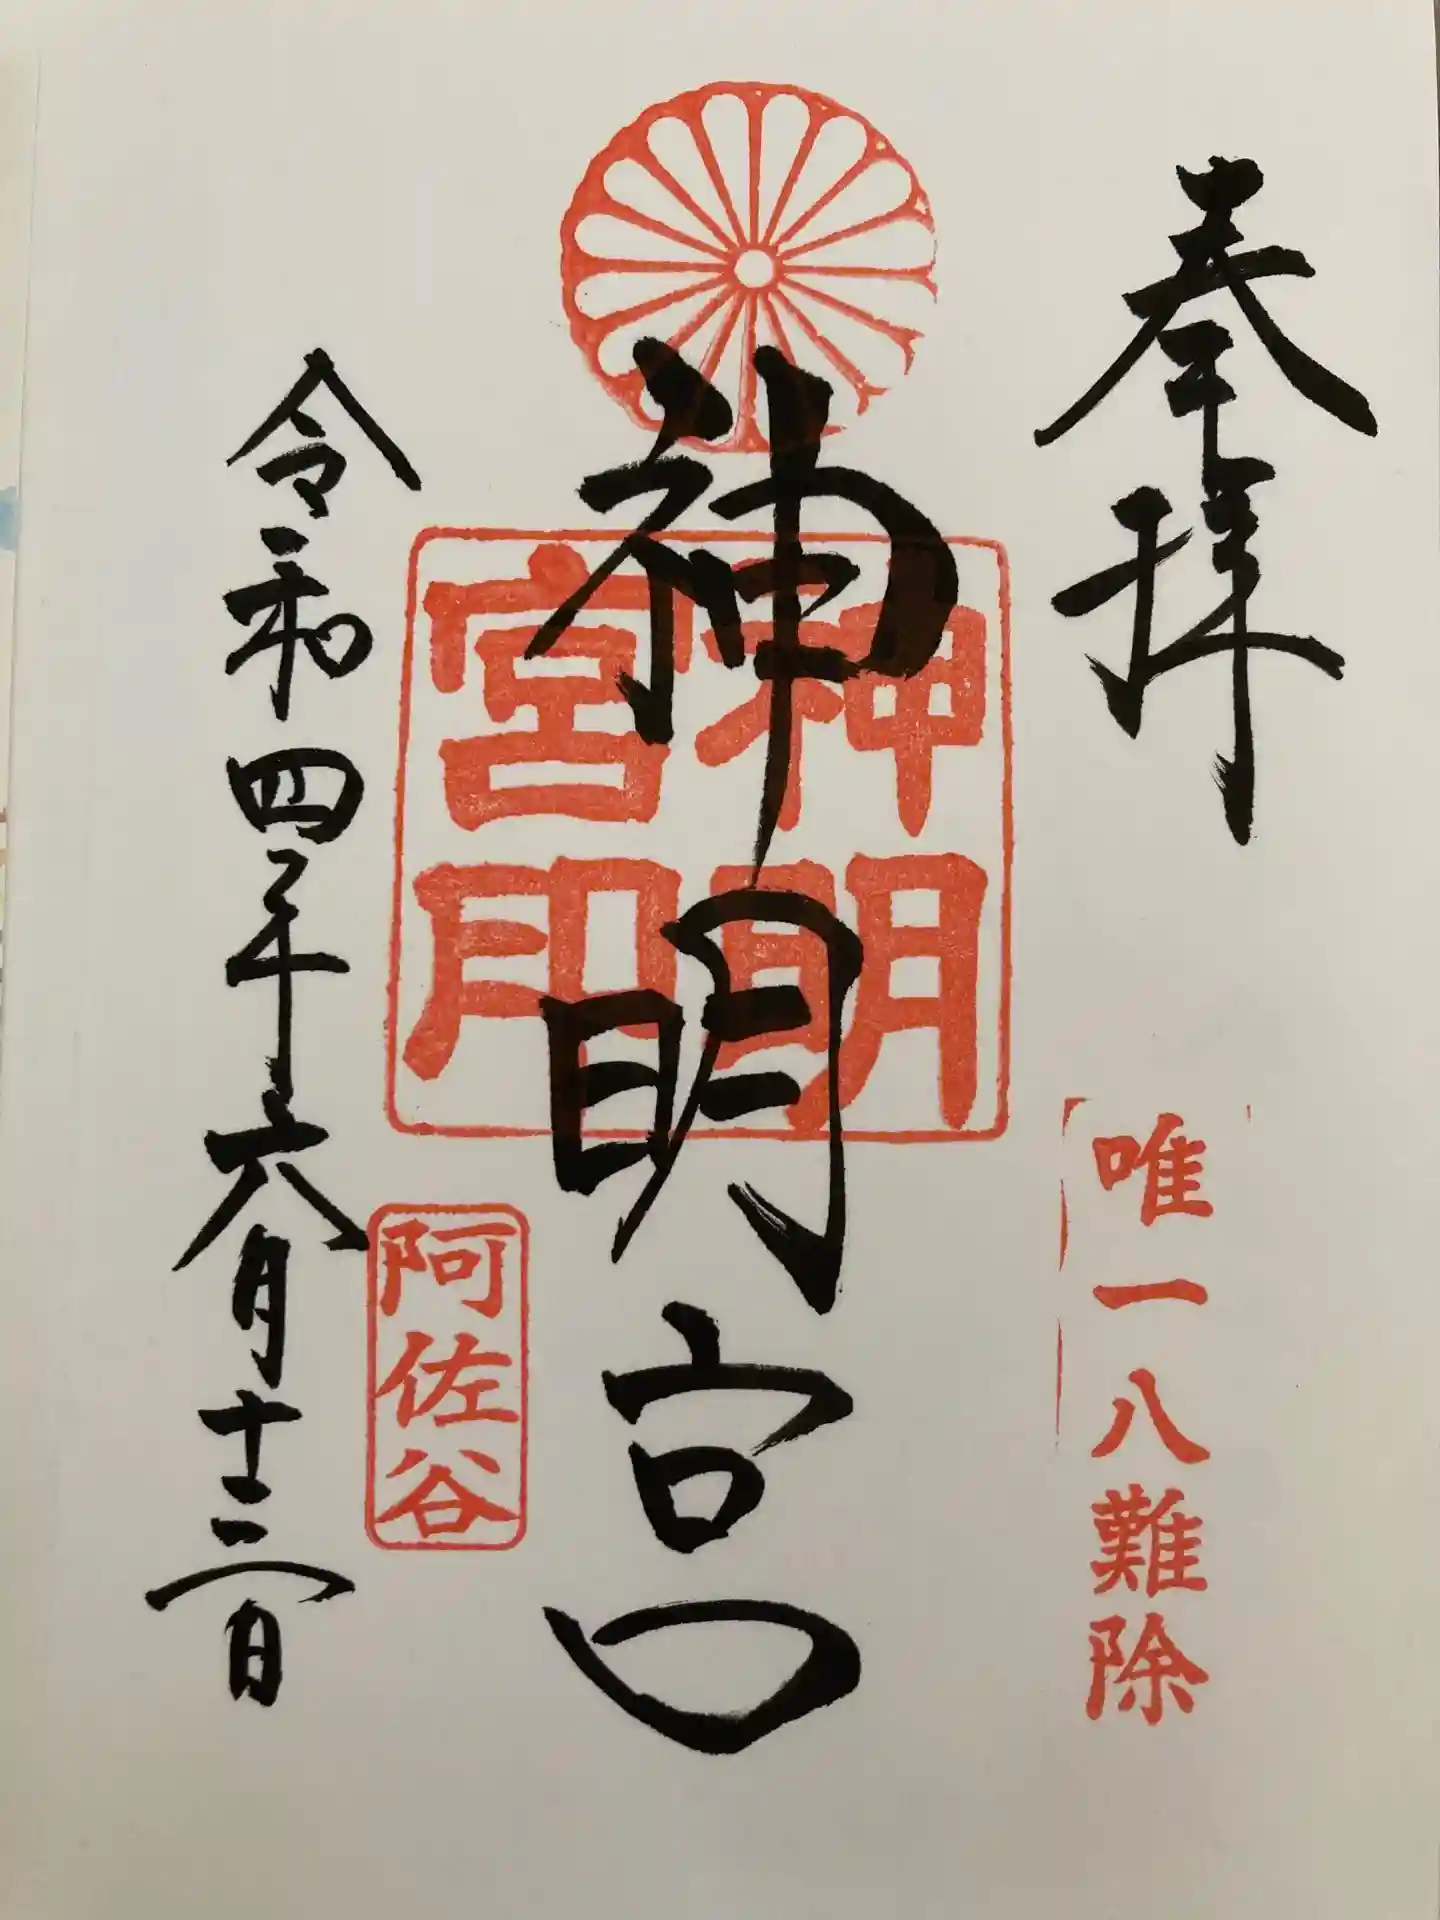 奉拝
唯一八難除
神明宮
神明
宮印
阿佐谷
令和四年六月十二日